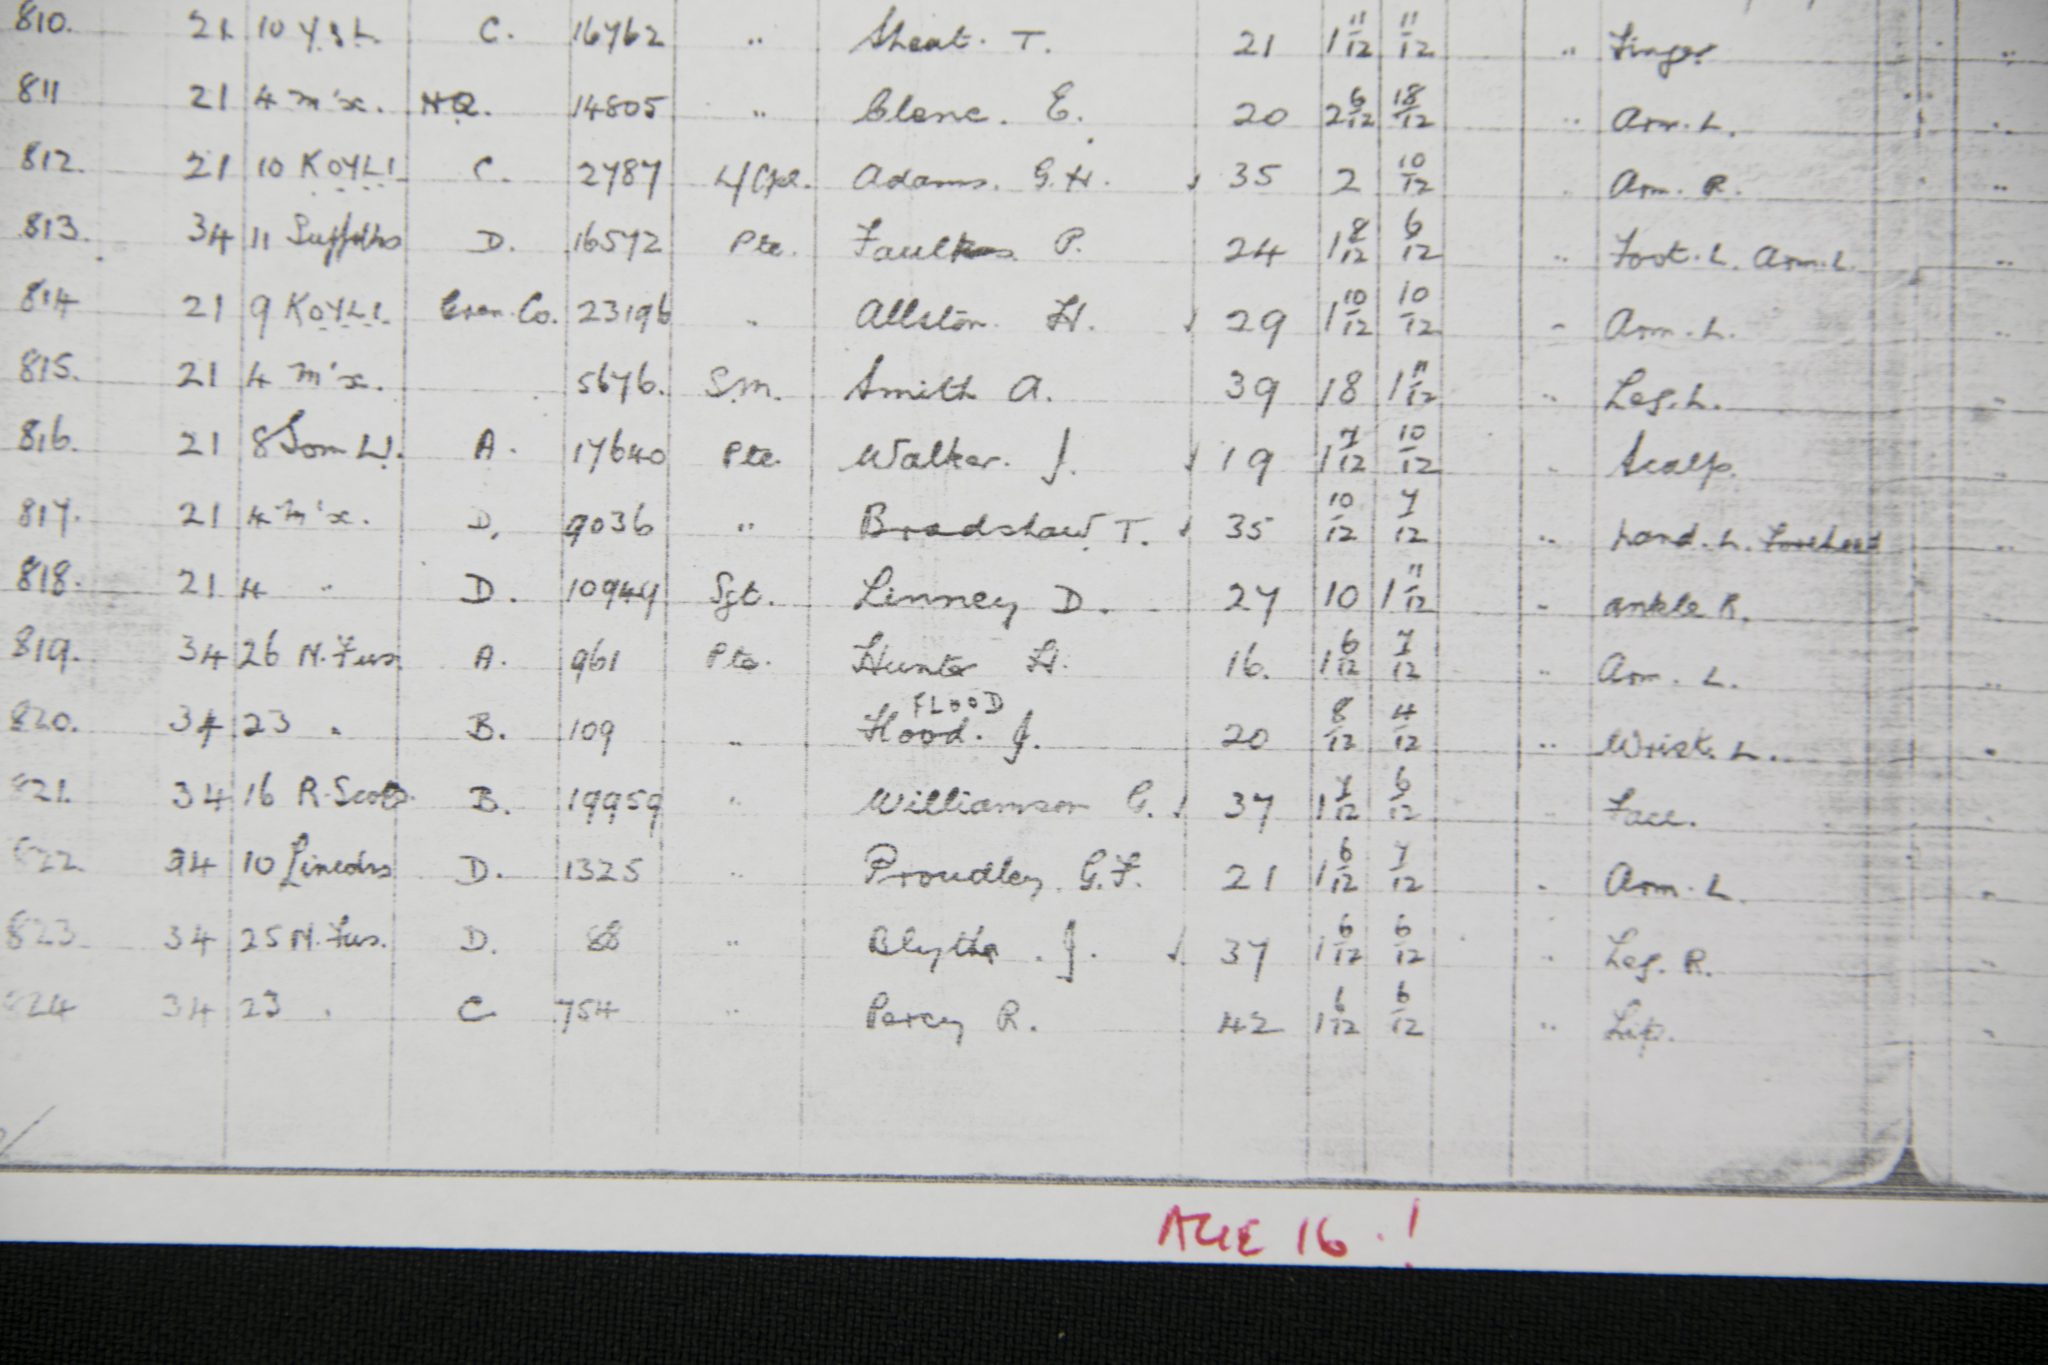 810. 21 10 Y.&L. C. 16762 " Sheat. T. 21 1 11/12 11/12 " Finger "
811 21 4 M'x. HQ. 14805 " E. 20 2 6/12 18/12 " Arm. L. "
812. 21 10 KOYLI C. 2787 L/Cpl. Adams. G.H. 35 2 10/12 Arm. R. "
813. 34 11 Suffolks D. 16572 Pte. P. 24 1 8/12 6/12 " Foot. L. Arm. L. "
814 21 9 KOYLI. Gren. Co. 23196 " Allston. H. 29 1 10/12 10/12 " Arm. L. "
815. 21 4 M'x. 5676. S.M. Smith A. 39 18 1 11/12 " Leg. L. "
816. 21 8 Som L.I. A. 17640 Pte. Walker. J. 19 1 7/12 10/12 " Scalp. "
817. 21 4 M'x. D. 9036 " Bradshaw. T. 35 10/12 7/12 " Hand. L. Forehead "
818. 21 4 " D. Sgt. Linney D. 27 10 1 11/12 " Ankle R. "
819. 34 26 N. Fus. A. 961 Pte. Hunter H. 16. 1 6/12 7/12 " Arm. L. "
FLOOD
820. 34 23 " B. 109 " Hood. J. 20 8/12 4/12 " Wrist. L. "
821. 34 16 R. Scots. B. 19959 " Williamson G. 37 1 7/12 6/12 " Face. "
822. 34 10 Lincolns D. 1325 " Proudley. G.F. 21 1 6/12 7/12 " Arm. L. "
823. 34 25 N. Fus. D. 88 " Blythe. J. 37 1 6/12 6/12 " Leg. R. "
824 34 23 " C 754 " Percy R. 42 1 6/12 6/12 " Lip. "
AGE 16.!